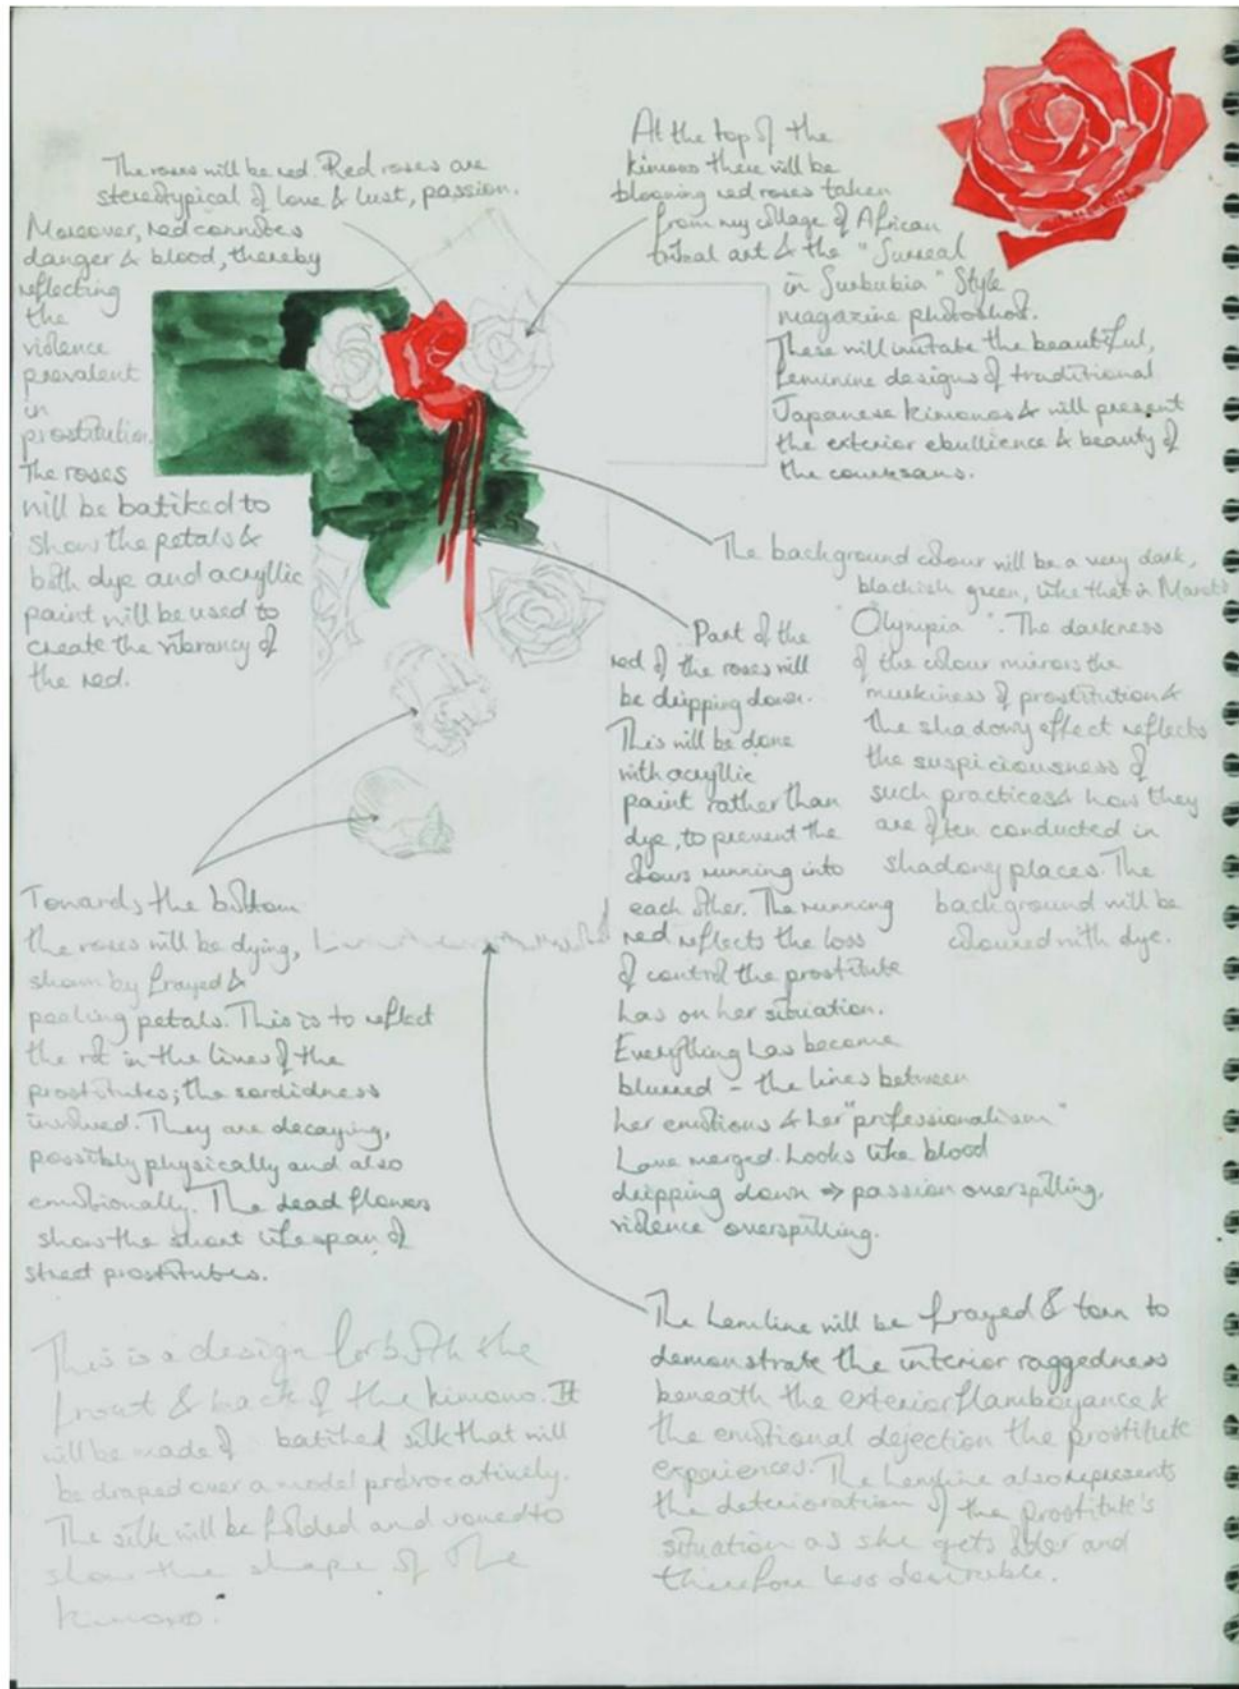 The roses will be red. Red roses are
stereotypical of love & lust, passion.
Moreover, red connotes
danger & blood, thereby
reflecting
the
violence
prevalent
in
prostitution.
The roses
will be batiked to
show the petals &
both dye and acryllic
paint will be used to
create the vibrancy of
the red.
At the top of the
kimono there will be
blooming red roses taken
from my collage of African
tribal art & the "Surreal
in Surbubia" Style
magazine photoshoot.
These will imitate the beautiful,
feminine designs of traditional
Japanese kimonos & will present
the exterior ebullience & beauty of
the courtesans.
The background colour will be a very dark,
blackish green, like that in Manet's
"Olympia". The darkness
of the colour mirrors the
murkiness of prostitution &
the shadowy effect reflects
the suspiciousness of
such practices & how they
are often conducted in
shadowy places. The
background will be
coloured with dye.
Part of the
red of the roses will
be dripping down.
This will be done
with acryllic
paint rather than
dye, to prevent the
colours running into
each other. The running
red reflects the loss
of control the prostitute
has on her situation.
Everything has become
blurred - the lines between
her emotions & her "professionalism"
have merged. Looks like blood
dripping down → passion overspilling,
violence overspilling.
Towards the bottom
the roses will be dying,
shown by frayed &
peeling petals. This is to reflect
the rot in the lives of the
prostitutes; the sordidness
involved. They are decaying,
possibly physically and also
emotionally. The dead flowers
show the short lifespan of
street prostitutes.
The hemline will be frayed & torn to
demonstrate the interior raggedness
beneath the exterior flamboyance &
the emotional dejection the prostitute
experiences. The hemline also represents
the deterioration of the prostitute's
situation as she gets older and
therefore less desirable.
This is a design for both the
front & back of the kimono. It
will be made of batiked silk that will
be draped over a model provocatively.
The silk will be folded and to
show the shape of the
kimono.